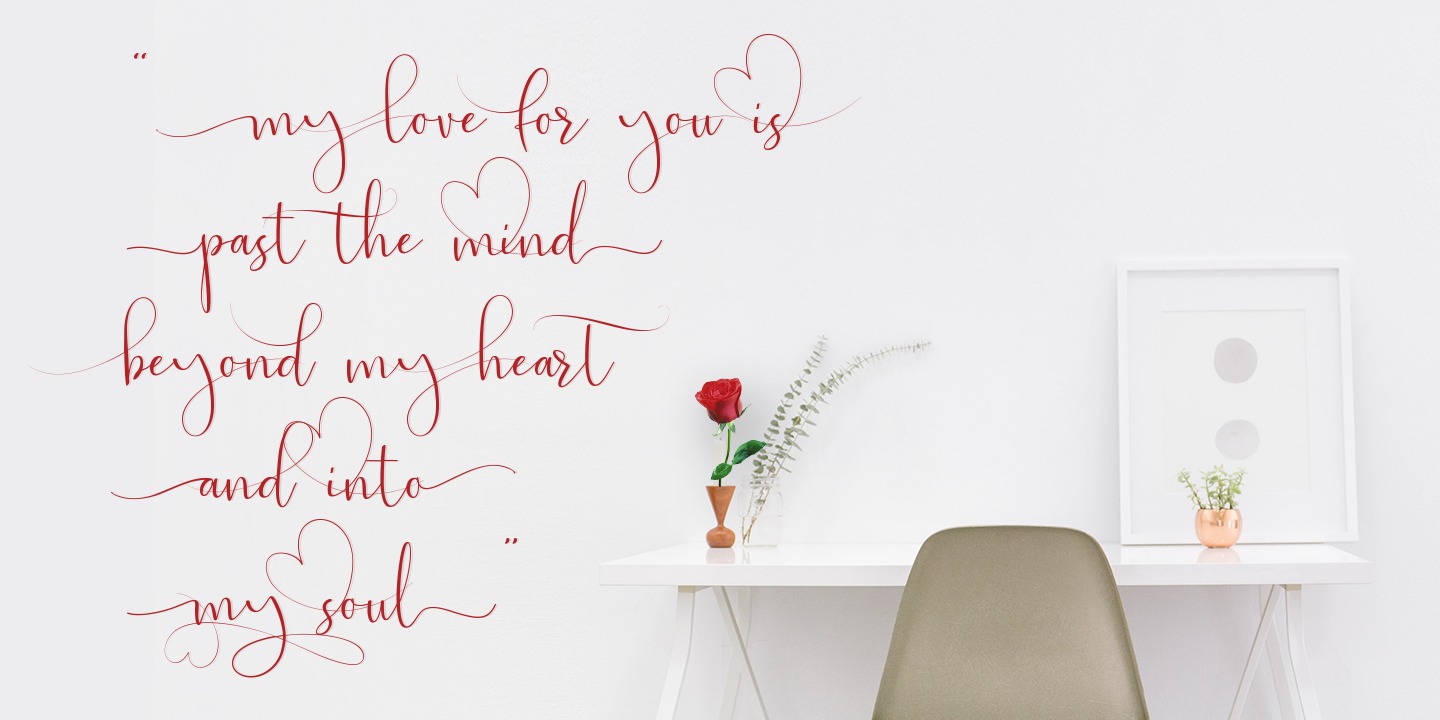 “ my love for you is
past the mind
beyond my heart
and into
my soul ”